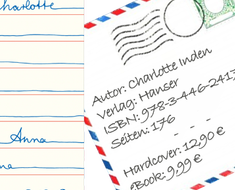 Charlotte
Anna
Autor: Charlotte Inden
Verlag: Hanser
ISBN: 978-3-446-2413
Seiten: 176
Hardcover: 12,90 €
eBook: 9,99 €